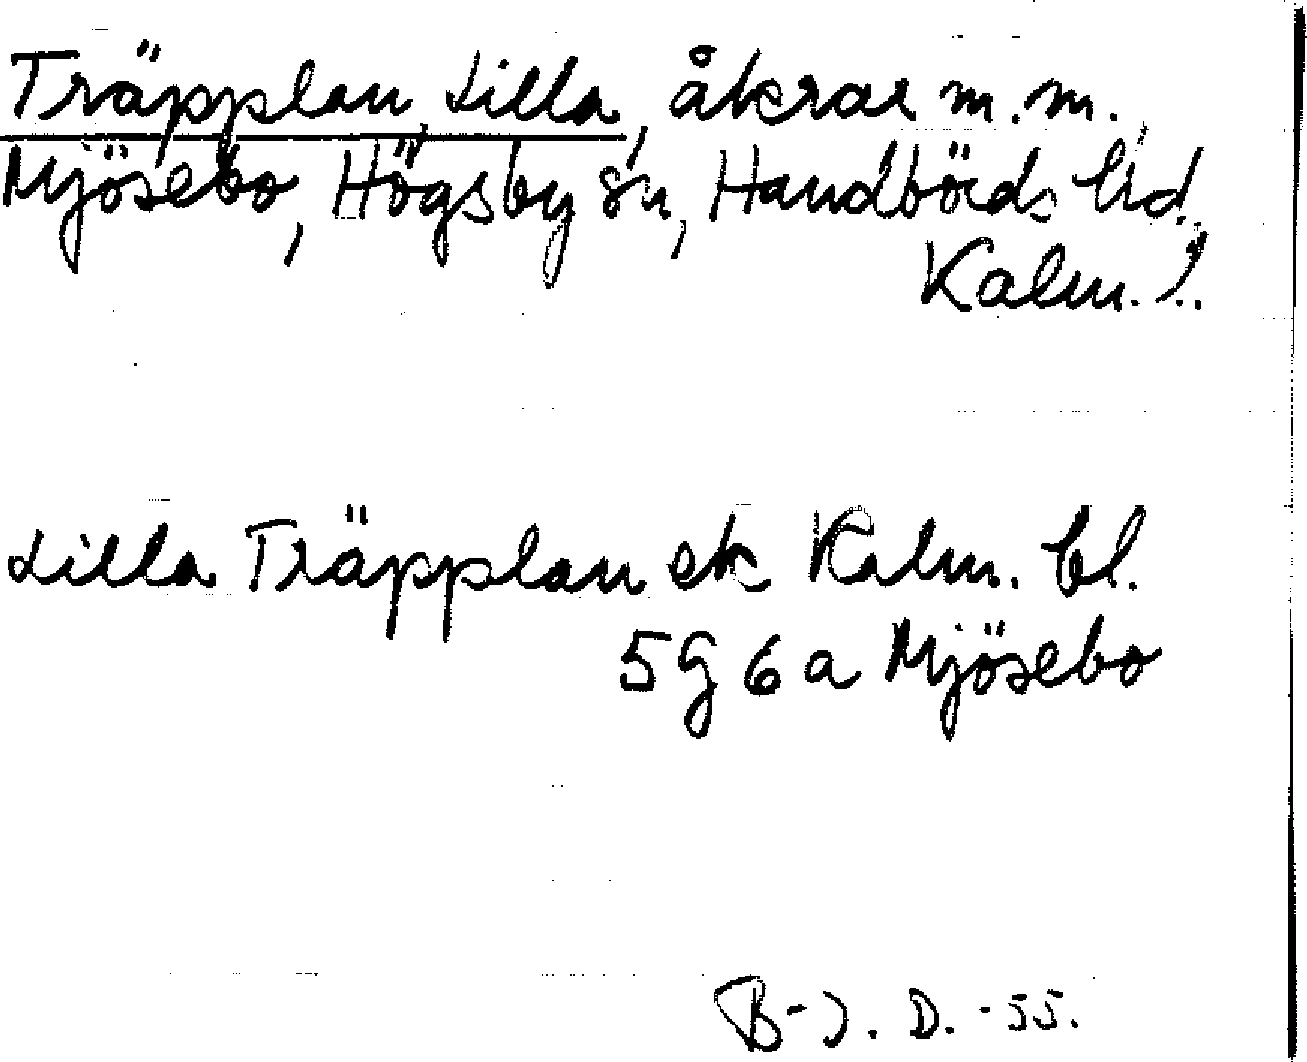 Träpplan, Lilla, åkrar m.m.,
Mjösebo, Högsby sn, Handbörds hd.,
Kalm. l.
Lilla Träpplan ek Kalm. bl.
5 G 6 a Mjösebo
B-J. D. -55.